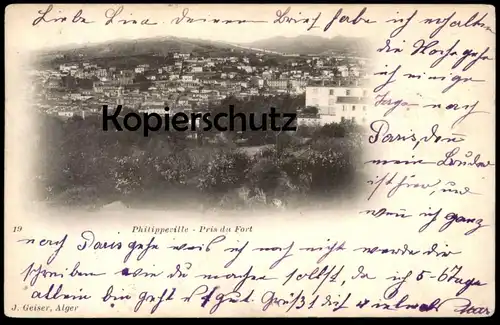 Liebe Lina deinen Brief habe ich erhalten
die Woche gehe
ich einige
Tage nach
Paris, denn
mein
ist hier, und
wenn ich ganz
Kopierschutz
19
Philippeville - Pris du Fort
nach Paris gehe weiß ich noch nicht werde dir
schreiben wie du machen sollst, da ich 5-6 Tage
allein bin geht es gut Grüßt dich vielmals
J. Geiser, Alger